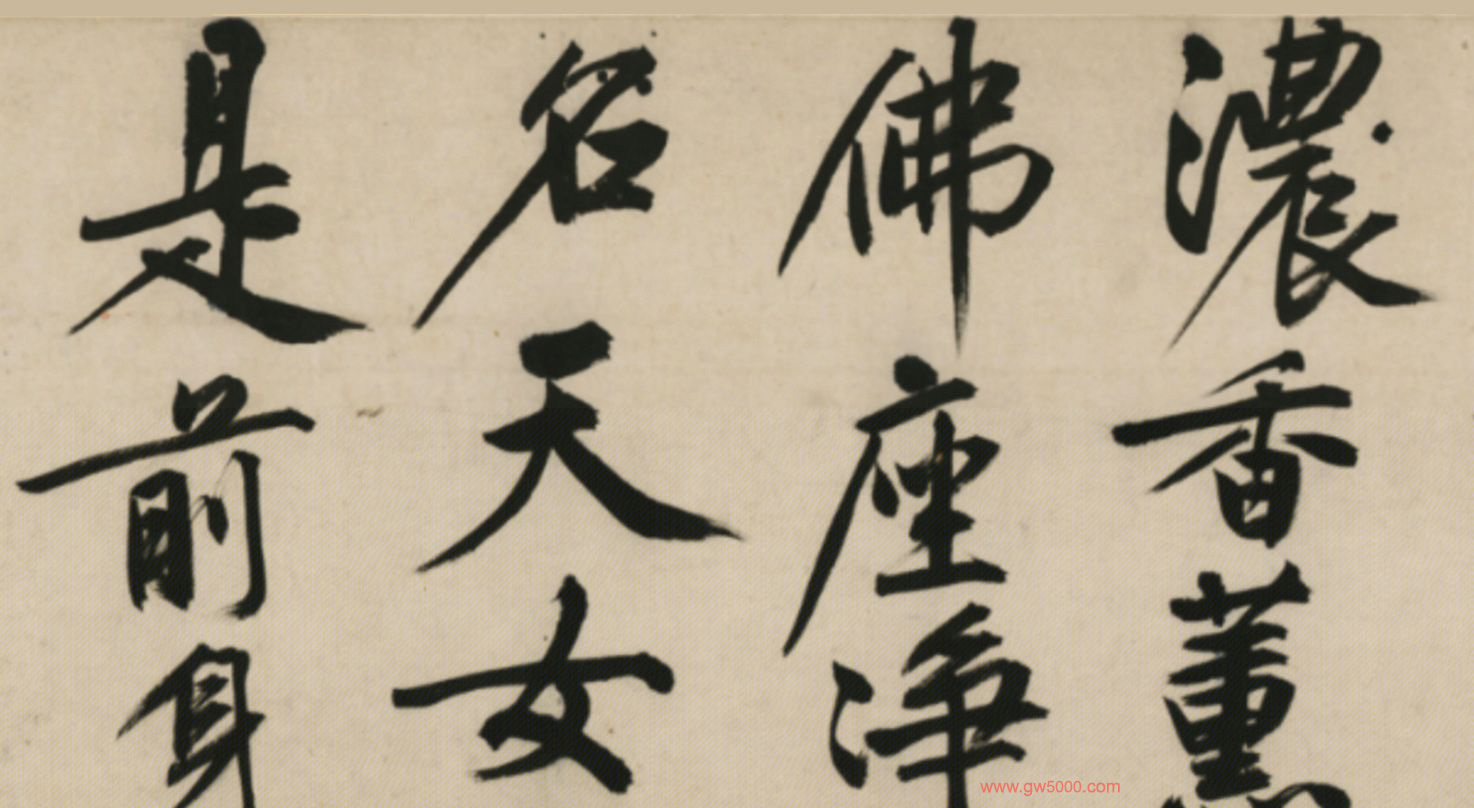 濃香薰
佛座淨
名天女
是前身
www.gw5000.com